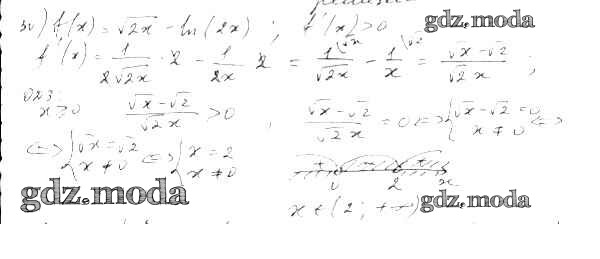 f(x) = √2x - ln(2x) ; f'(x) > 0
gdz.moda
f'(x) = 1/(2√2x) · 2 - 1/(2x) · 2 = 1/√2x - 1/x = (√x - √2)/(√2 x) ;
ОДЗ:
x ≥ 0 (√x - √2)/(√2 x) > 0 , (√x - √2)/(√2 x) = 0 <=> { √x - √2 = 0 x ≠ 0 <=>
<=> { √x = √2 x ≠ 0 <=> { x = 2 x ≠ 0
0 2 x
gdz.moda
x ∈ (2; +∞)
gdz.moda